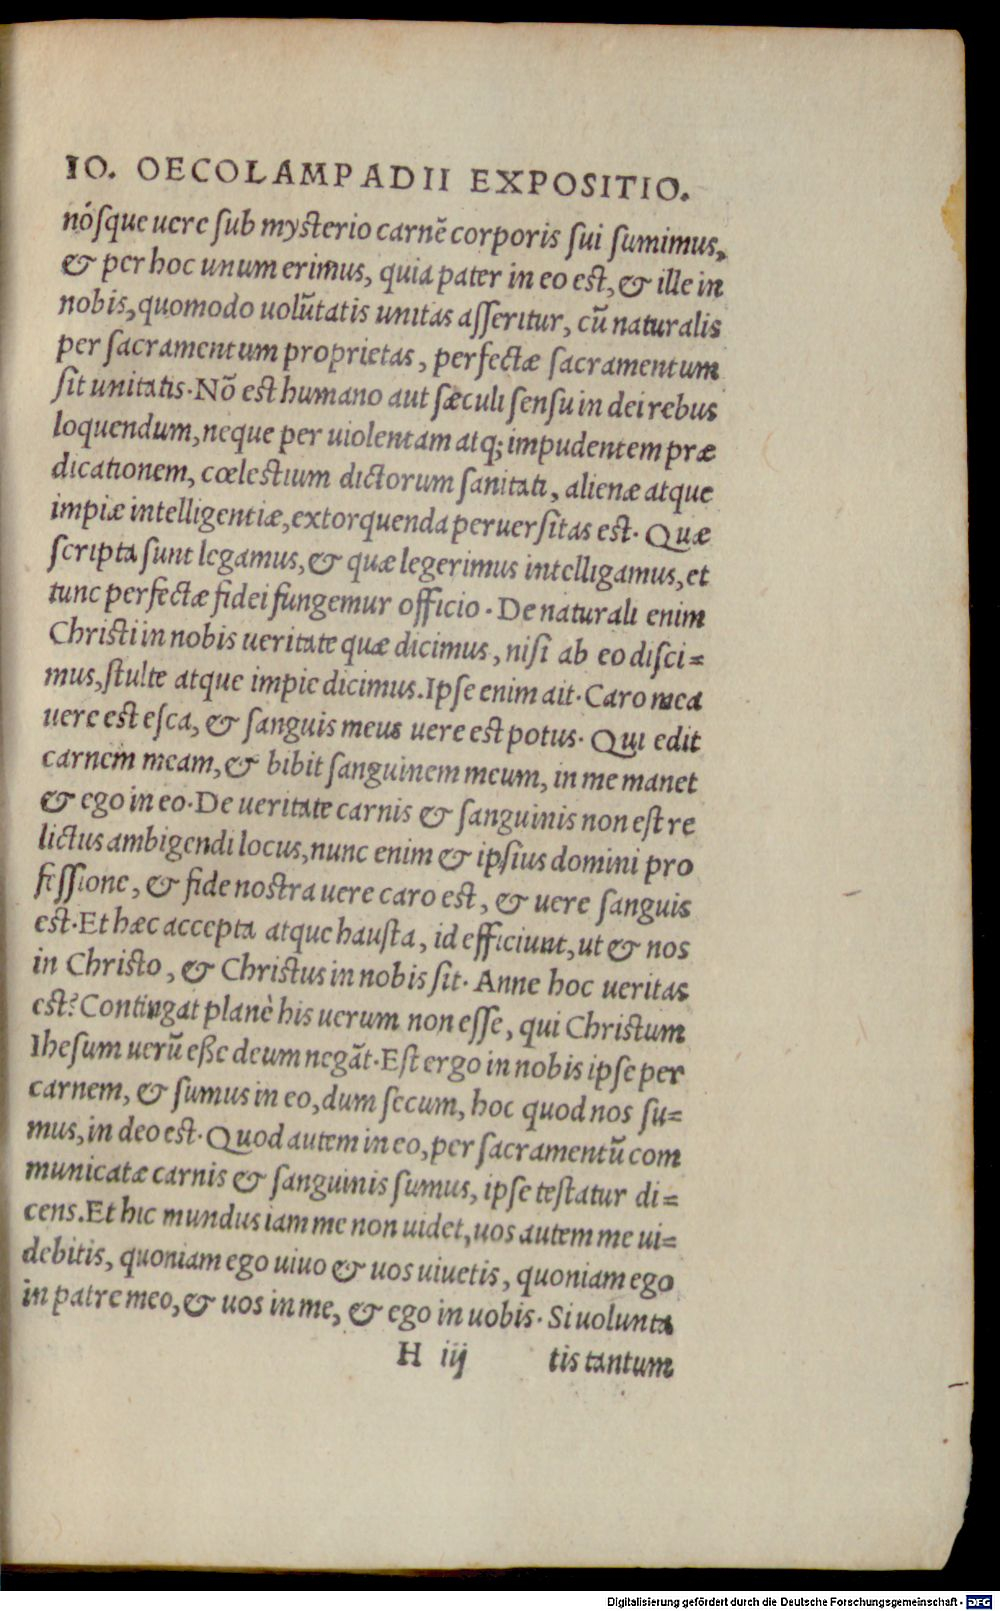 IO. OECOLAMPADII EXPOSITIO.
nósque uere sub mysterio carnẽ corporis sui sumimus,
& per hoc unum erimus, quia pater in eo est, & ille in
nobis, quomodo uolũtatis unitas asseritur, cũ naturalis
per sacramentum proprietas, perfectæ sacramentum
sit unitatis. Nõ est humano aut sæculi sensu in dei rebus
loquendum, neque per uiolentam atq; impudentem præ
dicationem, cœlestium dictorum sanitati, alienæ atque
impiæ intelligentiæ, extorquenda peruersitas est. Quæ
scripta sunt legamus, & quæ legerimus intelligamus, et
tunc perfectæ fidei fungemur officio. De naturali enim
Christi in nobis ueritate quæ dicimus, nisi ab eo disci=
mus, stulte atque impie dicimus. Ipse enim ait. Caro mea
uere est esca, & sanguis meus uere est potus. Qui edit
carnem meam, & bibit sanguinem meum, in me manet
& ego in eo. De ueritate carnis & sanguinis non est re
lictus ambigendi locus, nunc enim & ipsius domini pro
fessione, & fide nostra uere caro est, & uere sanguis
est. Et hæc accepta atque hausta, id efficiunt, ut & nos
in Christo, & Christus in nobis sit. Anne hoc ueritas
est? Contingat planè his uerum non esse, qui Christum
Ihesum uerũ eße deum negãt. Est ergo in nobis ipse per
carnem, & sumus in eo, dum secum, hoc quod nos su=
mus, in deo est. Quod autem in eo, per sacramentũ com
municatæ carnis & sanguinis sumus, ipse testatur di=
cens. Et hic mundus iam me non uidet, uos autem me ui=
debitis, quoniam ego uiuo & uos uiuetis, quoniam ego
in patre meo, & uos in me, & ego in uobis. Si uolunta
H iij tis tantum
Digitalisierung gefördert durch die Deutsche Forschungsgemeinschaft - DFG